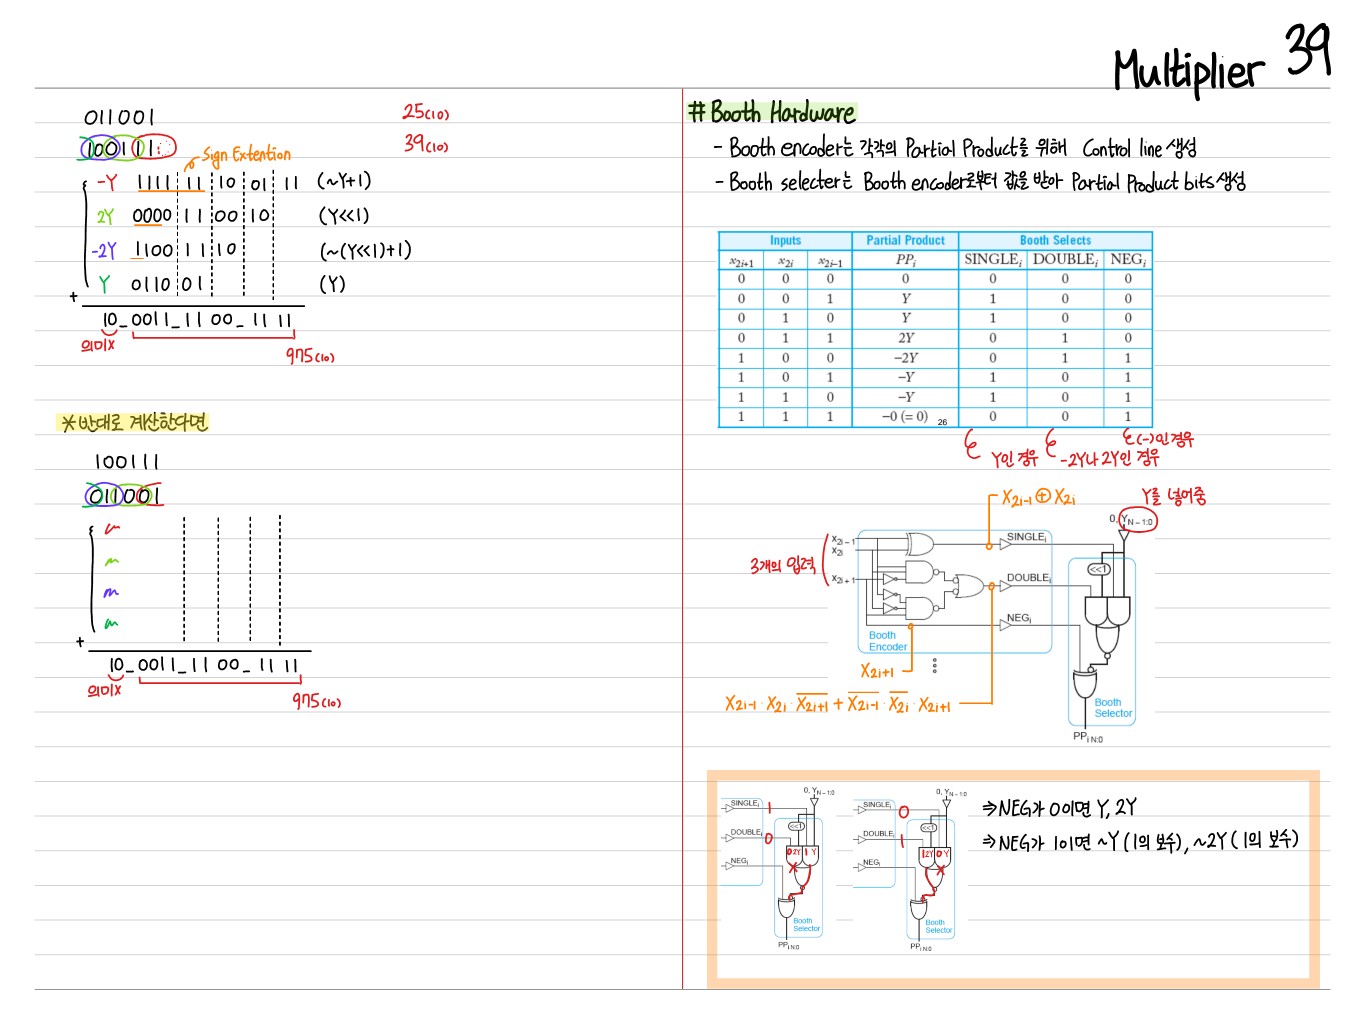 Multiplier 39
011001 25(10)
100111 39(10)
Sign Extention
-Y 1111 11 10 01 11 (~Y+1)
2Y 0000 11 00 10 (Y<<1)
-2Y 1100 11 10 (~(Y<<1)+1)
Y 0110 01 (Y)
+
10_0011_11 00_11 11
의미X
975(10)
*반대로 계산한다면
100111
011001
+
10_0011_11 00_11 11
의미X
975(10)
# Booth Hardware
- Booth encoder는 각각의 Partial Product를 위해 Control line 생성
- Booth selecter는 Booth encoder로부터 값을 받아 Partial Product bits 생성
Inputs Partial Product Booth Selects
x2i+1 x2i x2i−1 PPi SINGLEi DOUBLEi NEGi
0 0 0 0 0 0 0
0 0 1 Y 1 0 0
0 1 0 Y 1 0 0
0 1 1 2Y 0 1 0
1 0 0 −2Y 0 1 1
1 0 1 −Y 1 0 1
1 1 0 −Y 1 0 1
1 1 1 −0 (= 0) 0 0 1
26
Y인 경우
-2Y나 2Y인 경우
(-)인 경우
X2i-1 ⊕ X2i
Y를 넣어줌
0, YN − 1:0
3개의 입력
x2i − 1
x2i
x2i + 1
SINGLEi
<<1
DOUBLEi
NEGi
Booth
Encoder
X2i+1
X2i-1 · X2i · X̅2i+1 + X̅2i-1 · X̅2i · X2i+1
Booth
Selector
PPi N:0
0, YN − 1:0
SINGLEi 1
<<1
DOUBLEi 0
0 2Y 1 Y
NEGi
Booth
Selector
PPi N:0
0, YN − 1:0
SINGLEi 0
<<1
DOUBLEi 1
1 2Y 0 Y
NEGi
Booth
Selector
PPi N:0
⇒ NEG가 0이면 Y, 2Y
⇒ NEG가 1이면 ~Y (1의 보수), ~2Y (1의 보수)